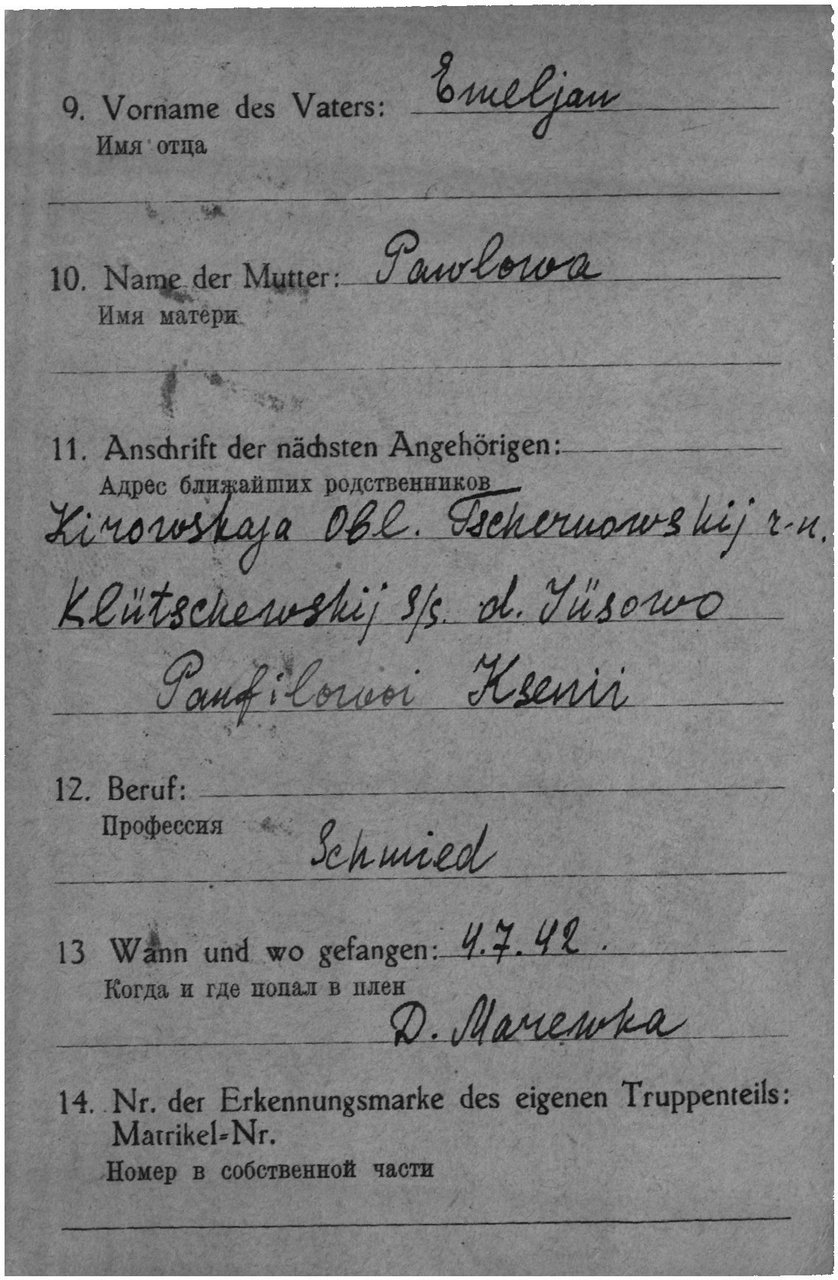 9. Vorname des Vaters: Emeljan
Имя отца
10. Name der Mutter: Pawlowa
Имя матери
11. Anschrift der nächsten Angehörigen:
Адрес ближайших родственников
Kirowskaja Obl. Tschernowskij r-n.
Klütschewskij s/s. d. Jüsowo
Panfilowoi Ksenii
12. Beruf:
Профессия
Schmied
13 Wann und wo gefangen: 4.7.42.
Когда и где попал в плен
D. Marewka
14. Nr. der Erkennungsmarke des eigenen Truppenteils:
Matrikel-Nr.
Номер в собственной части